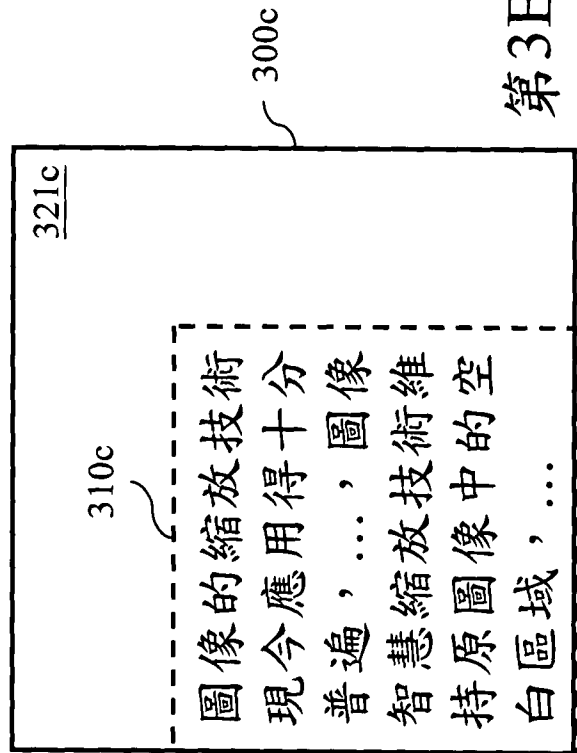 321c
310c
圖像的縮放技術
現今應用得十分
普遍，…，圖像
智慧縮放技術維
持原圖像中的空
白區域，…
300c
第3E